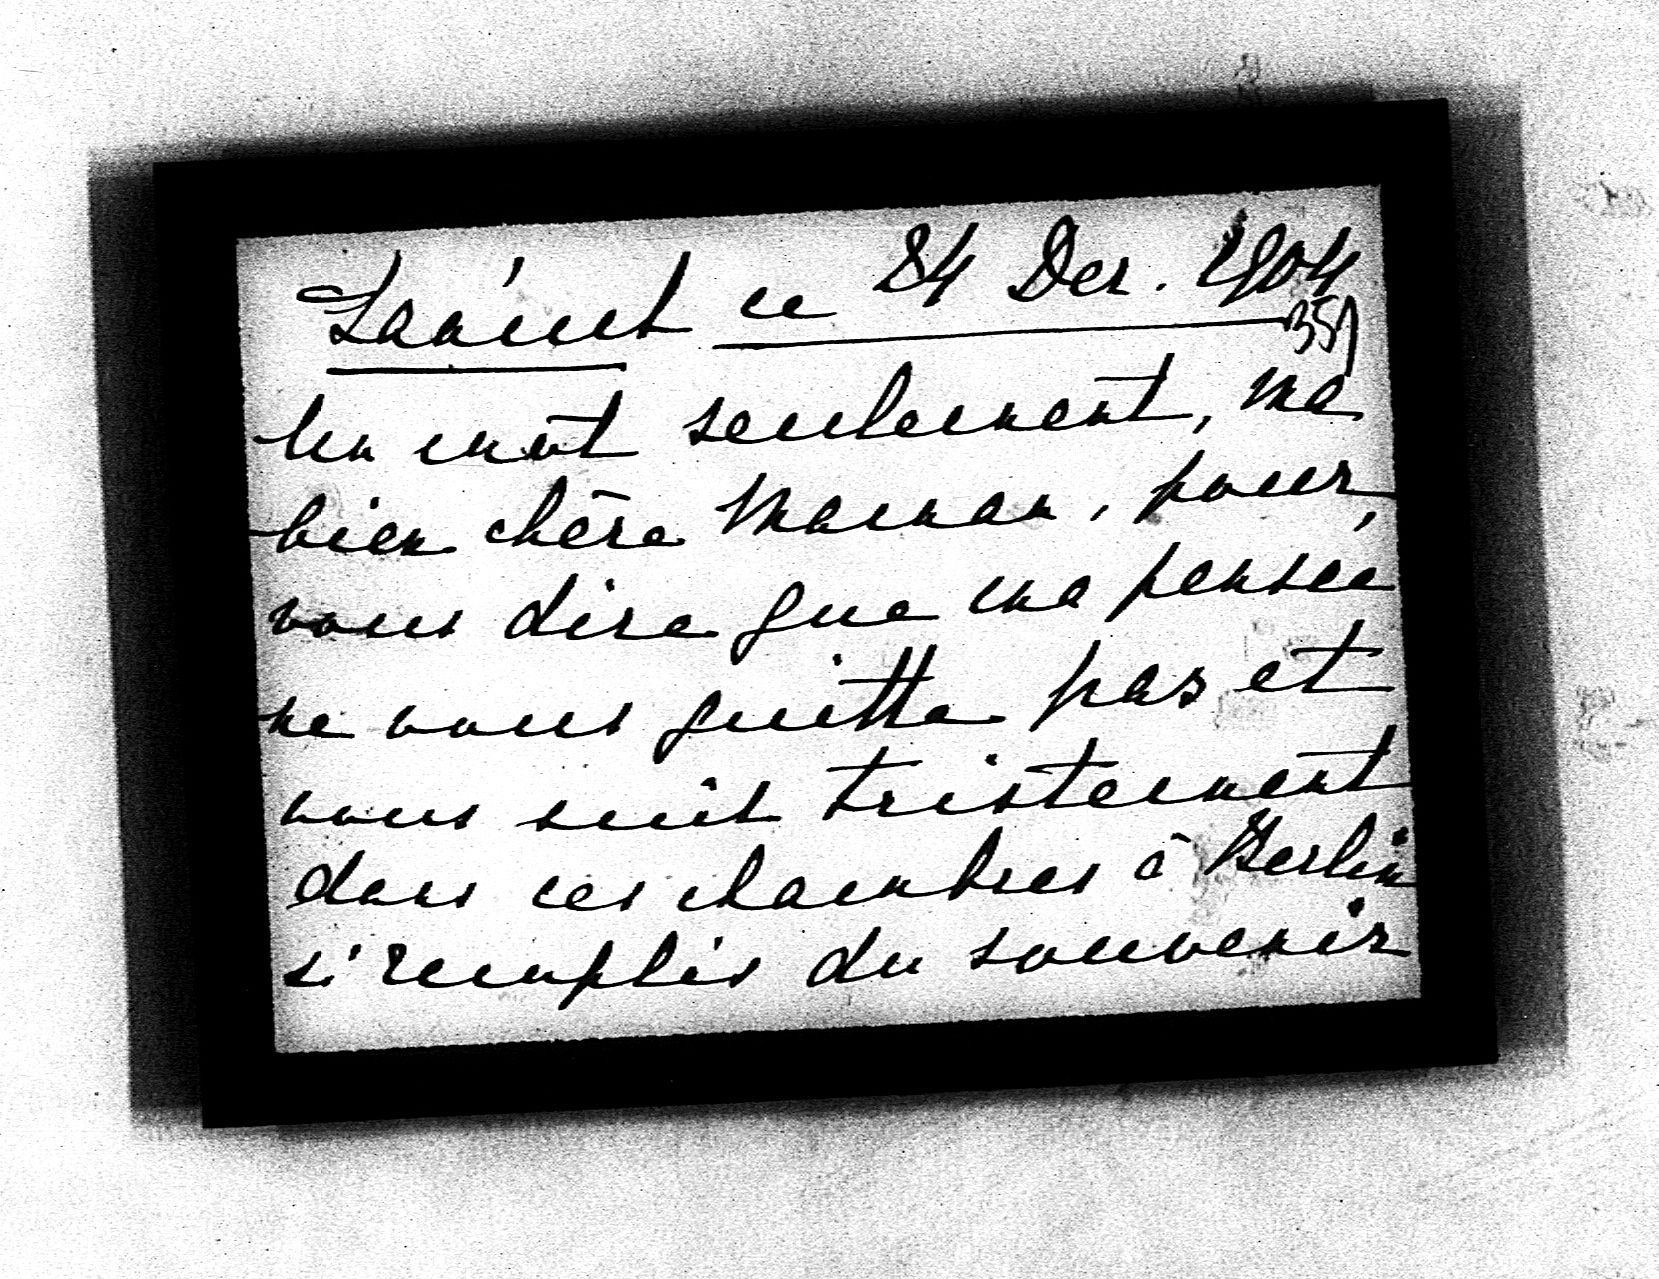 Łańcut ce 24 Dec. 1904
359
Un mot seulement, ma
bien chère Maman, pour
vous dire que ma pensée
ne vous quitte pas et
vous suit tristement
dans ces chambres à Berlin
si remplies du souvenir